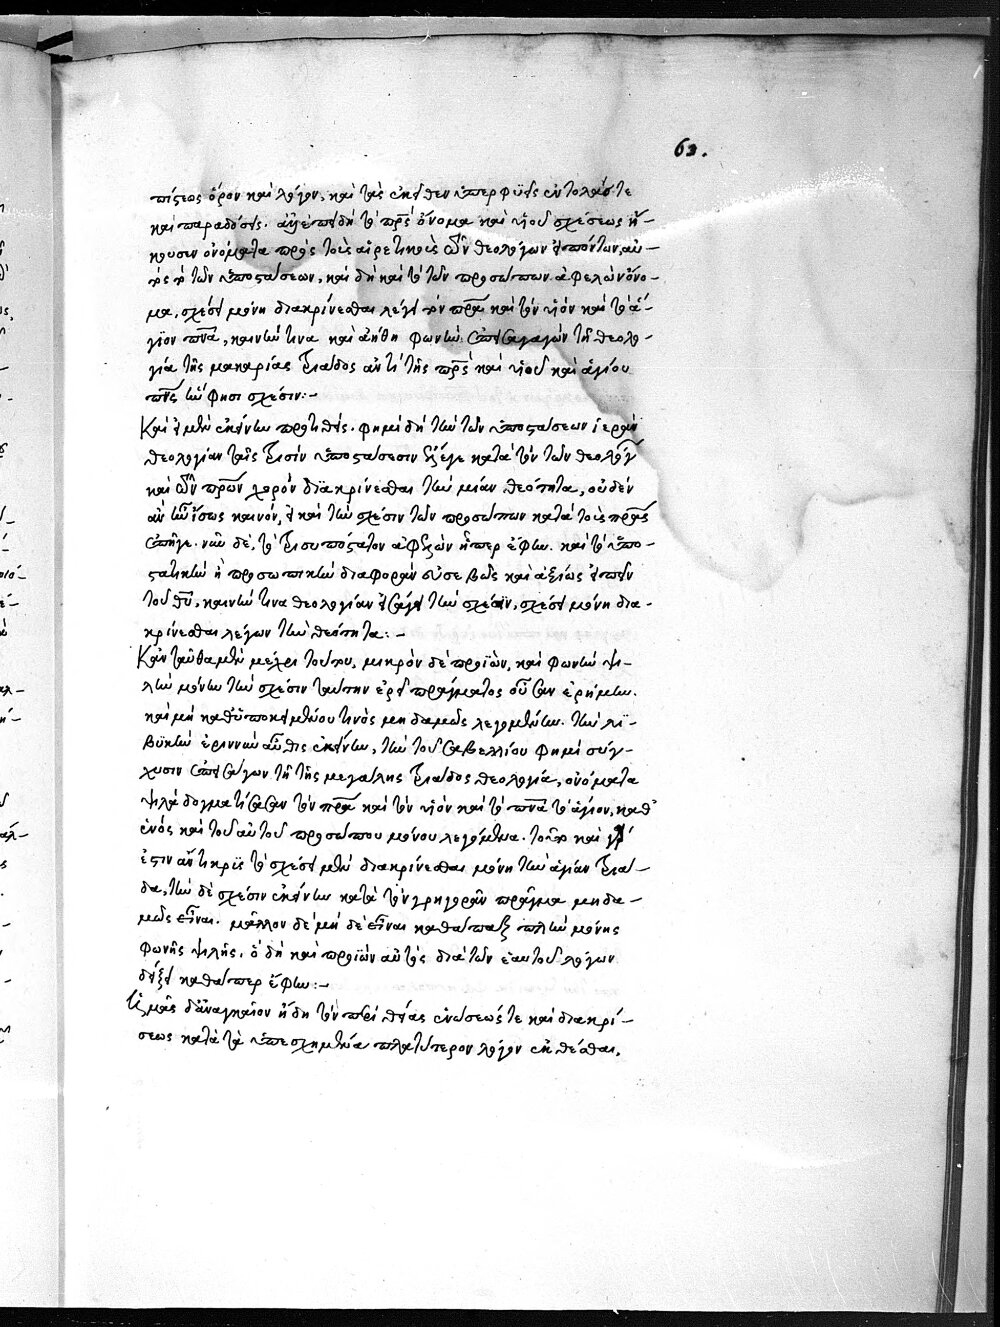 63.
πίστεως ὅρον καὶ λόγον, καὶ τὰς ἐκεῖθεν ὑπερφυεῖς ἐντολάς τε
καὶ παραδόσεις. ἀλλ' ἐπειδὴ τὸ πρς ὄνομα καὶ υἱοῦ σχέσεως ἤ-
κουσεν ὀνόματα πρὸς τοὺς αἱρετικοὺς τῶν θεολόγων εἰπόντων, αὐ-
τὸς τὸ τῶν ὑποστάσεων, καὶ δὴ καὶ τὸ τῶν προσώπων ἀφελὼν ὄνο-
μα, σχέσει μόνῃ διακρίνεσθαι λέγει τὸν πρα καὶ τὸν υἱὸν καὶ τὸ ἅ-
γιον πνα, καινήν τινα καὶ ἀήθη φωνὴν ἐπεισαγαγὼν τῇ θεολο-
γίᾳ τῆς μακαρίας τριάδος ἀντὶ τῆς πρς καὶ υἱοῦ καὶ ἁγίου
πνς ὥς φησι σχέσιν:-
Καὶ εἰ μὲν ἐκείνην προτιθεὶς. φημὶ δὴ τὴν τῶν ὑποστάσεων ἱερὰν
θεολογίαν ταῖς τρισὶν ὑποστάσεσιν ἔλεγε κατὰ τὸν τῶν θεολόγων
καὶ τῶν πρων χορὸν διακρίνεσθαι τὴν μίαν θεότητα, οὐδὲν
ἂν ἦν ἴσως καινὸν, εἰ καὶ τὴν σχέσιν τῶν προσώπων κατὰ τοὺς πρας
ἐπῆγε. νῦν δὲ, τὸ τρισυπόστατον ἀφελὼν ᾗπερ ἔφην. καὶ τὸ ὑπο-
στατικὴν ἢ προσωπικὴν διαφορὰν εὐσεβῶς καὶ ἀξίως εἰπεῖν
τοῦ θυ, καινήν τινα θεολογίαν εἰσάγει τὴν σχέσιν, σχέσει μόνῃ δια-
κρίνεσθαι λέγων τὴν θεότητα:-
Κἀνταῦθα μὲν μέχρι τούτου, μικρὸν δὲ προϊὼν, καὶ φωνὴν ψι-
λὴν μόνην τὴν σχέσιν ταύτην ἐρεῖ πράγματος οὖσαν ἐρήμην.
καὶ μὴ καθ' ὑποκειμένου τινὸς μηδαμῶς λεγομένην. τὴν λι-
βυκὴν ἐριννὺν αὖθις ἐκείνην, τὴν τοῦ σαβελλίου φημὶ σύγ-
χυσιν ἐπεισάγων τῇ τῆς μεγάλης τριάδος θεολογίᾳ, ὀνόματα
ψιλὰ δογματίσασαν τὸν πρα καὶ τὸν υἱὸν καὶ τὸ πνα τὸ ἅγιον, καθ'
ἑνὸς καὶ τοῦ αὐτοῦ προσώπου μόνου λεγόμενα. τοῦτο καὶ γάρ
ἐστιν ἄντικρυς τὸ σχέσει μὲν διακρίνεσθαι μόνῃ τὴν ἁγίαν τριά-
δα, τὴν δὲ σχέσιν ἐκείνην κατὰ τὸν γρηγορᾶν πρᾶγμα μηδα-
μῶς εἶναι. μᾶλλον δὲ μὴ δὲ εἶναι καθάπαξ πλὴν μόνης
φωνῆς ψιλῆς. ὃ δὴ καὶ προϊὼν αὐτὸς διὰ τῶν ἑαυτοῦ λόγων
δείξει καθάπερ ἔφην:-
Ἡμᾶς δ' ἀναγκαῖον ἤδη τὸν περὶ θείας ἑνώσεώς τε καὶ διακρί-
σεως κατὰ τὰ ὑπεσχημένα πλατύτερον λόγον ἐκθέσθαι.